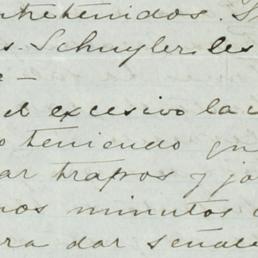 ntretenidos. S
s. Schuyler les
e—
el excesivo la c
o teniendo qu
ar trapos y ja
nos minutos d
ra dar señale